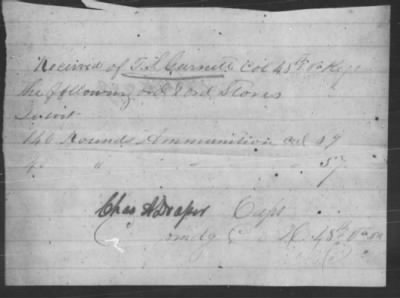 Received of T. S. Garnett Col 48th Va Regt
the following Ord Stores
To wit
140 Rounds Ammunition cal 69
40 " " " 57
Chas A Draper Capt
Comdg C H 48th Va